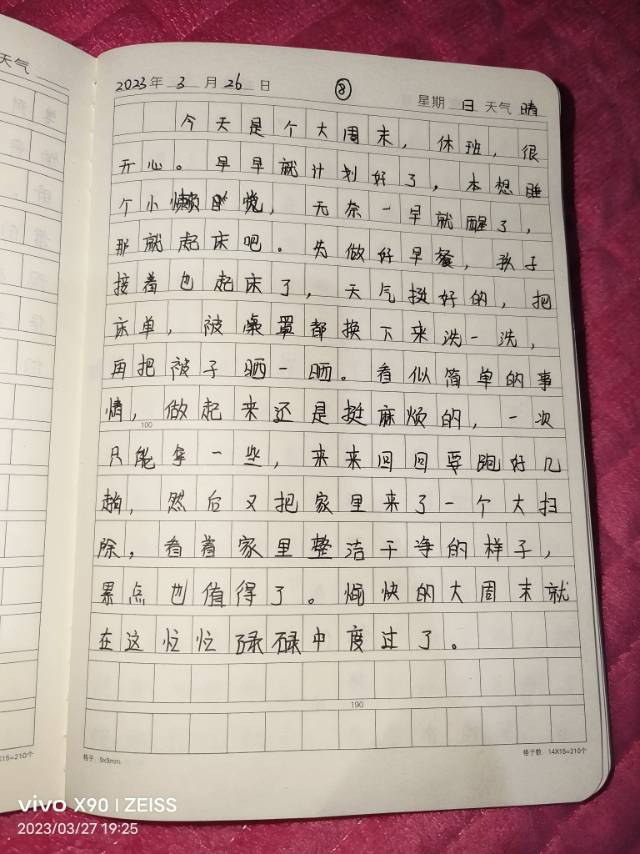 天气
2023年 3 月 26 日 ⑧ 星期 日 天气 晴
今天是个大周末，休班，很
开心。早早就计划好了，本想睡
个小懒觉，无奈一早就醒了，
那就起床吧。为做好早餐，孩子
接着也起床了，天气挺好的，把
床单，被桌罩都换下来洗一洗，
再把被子晒一晒。看似简单的事
情，做起来还是挺麻烦的，一次
100
只能拿一些，来来回回要跑好几
趟，然后又把家里来了一个大扫
除，看着家里整洁干净的样子，
累点也值得了。愉快的大周末就
在这忙忙碌碌中度过了。
190
格子：9x9mm
格子数：14X15=210个
X15=210个
vivo X90 | ZEISS
2023/03/27 19:25